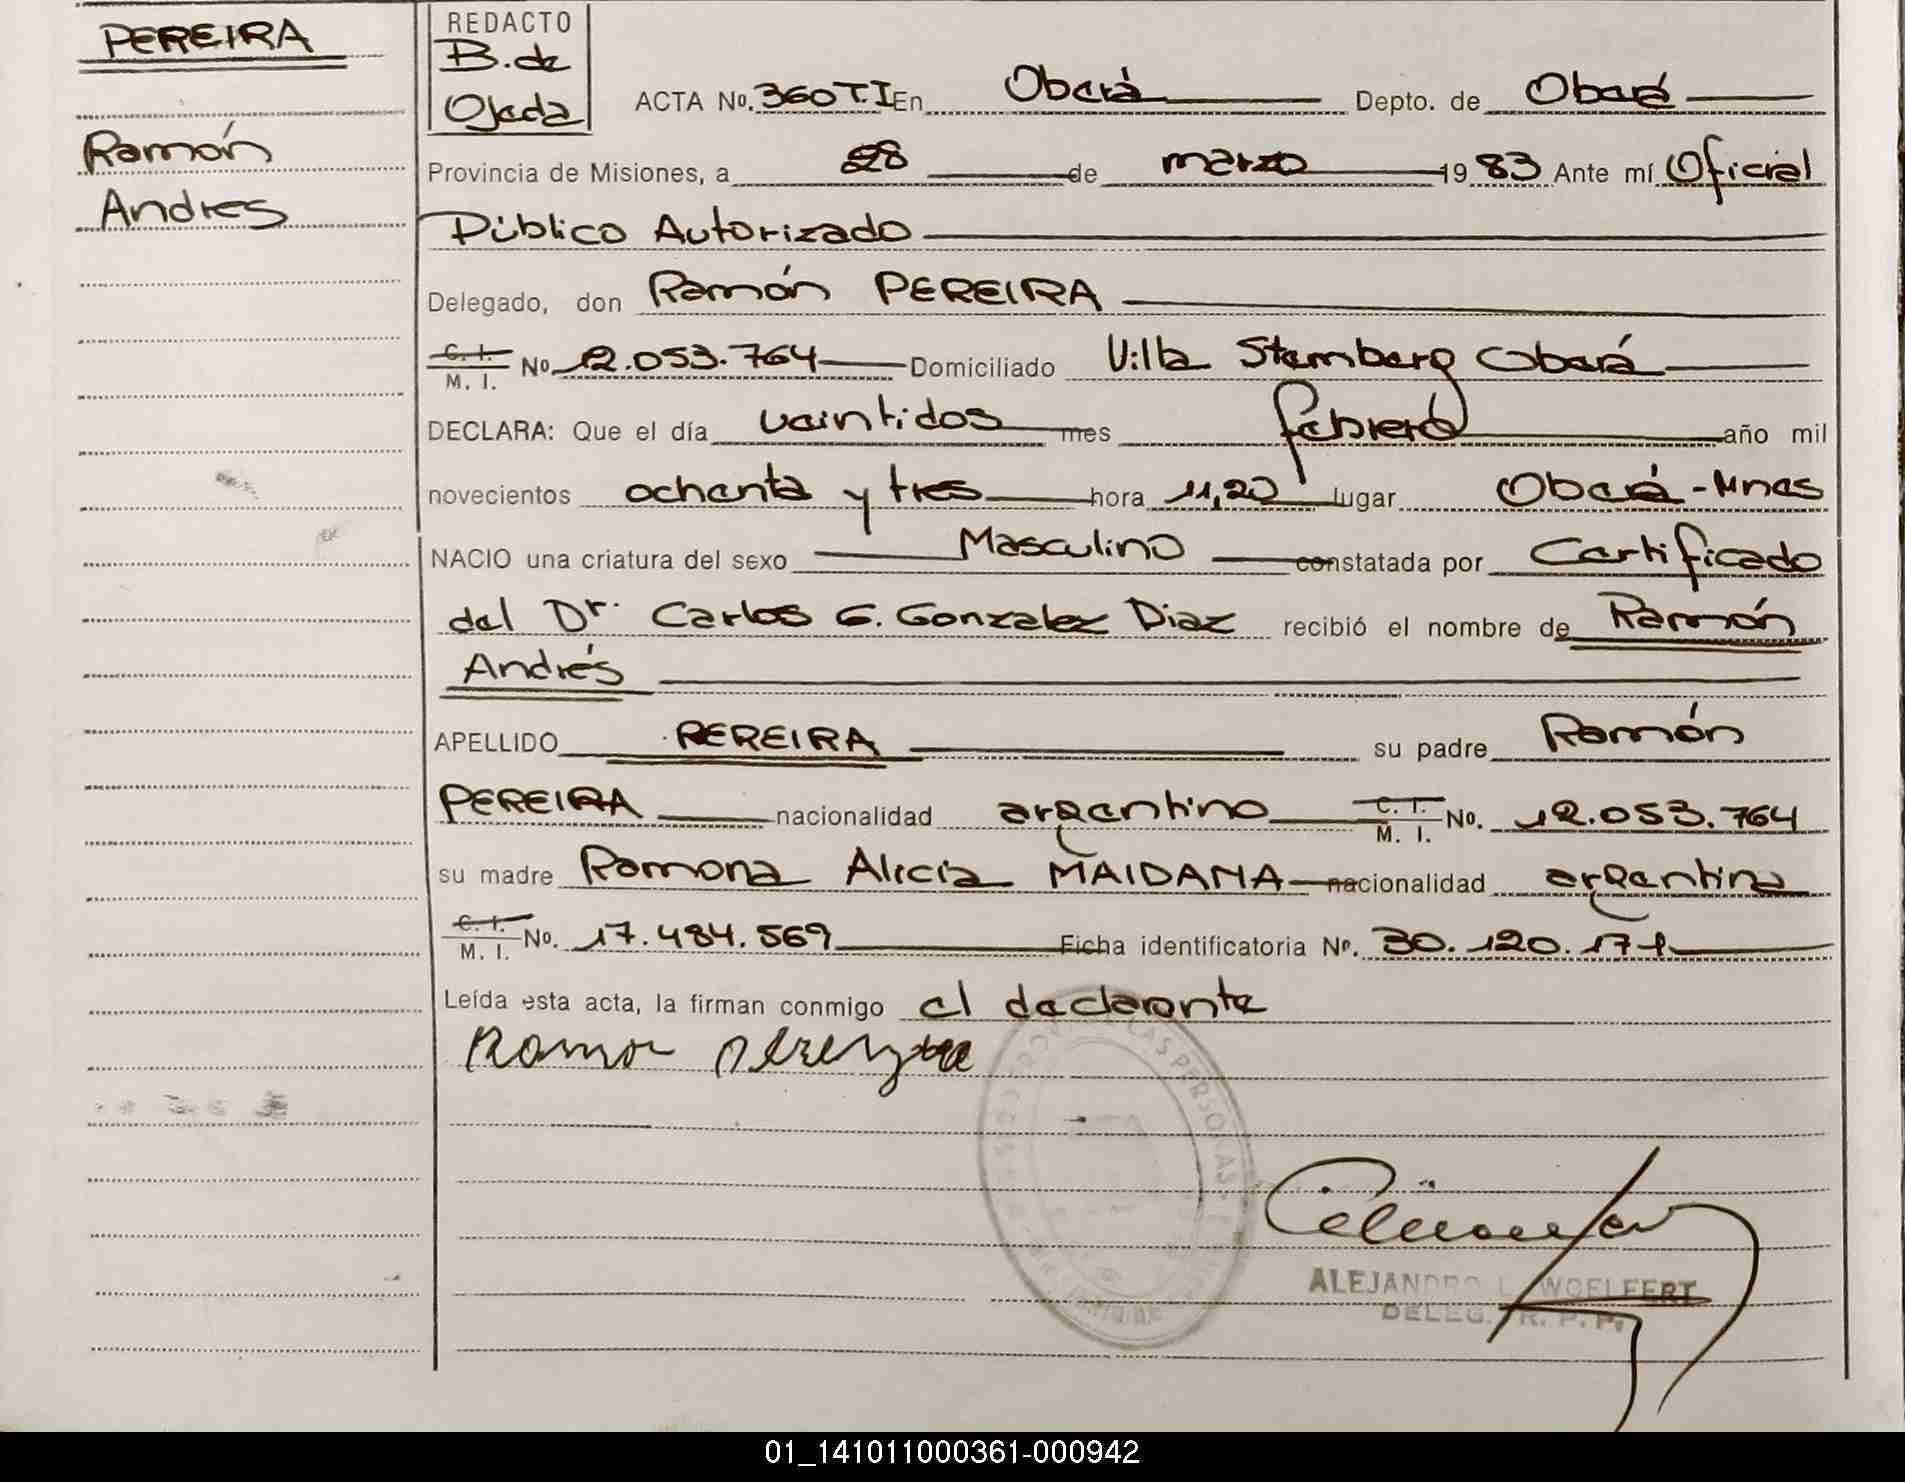 PEREIRA
Ramón
Andres
REDACTO
B. de
Ojeda
ACTA No. 360 T.I En Oberá Depto. de Oberá
Provincia de Misiones, a 28 de marzo 1983 Ante mí Oficial
Público Autorizado
Delegado, don Ramón PEREIRA
C. I. M. I. No 12.053.764 Domiciliado Villa Stemberg Oberá
DECLARA: Que el día veintidos mes febrero año mil
novecientos ochenta y tres hora 11,20 lugar Oberá - Mnes
NACIO una criatura del sexo Masculino constatada por Certificado
del Dr. Carlos G. Gonzalez Diaz recibió el nombre de Ramón
Andrés
APELLIDO PEREIRA su padre Ramón
PEREIRA nacionalidad argentino C. I. M. I. No. 12.053.764
su madre Ramona Alicia MAIDANA nacionalidad argentina
C. I. M. I. No. 17.484.569 Ficha identificatoria No. 30.120.171
Leída esta acta, la firman conmigo el declarante
Ramon
LAS PERSONAS
ALEJANDRO L. WOELFERT
DELEG. R. P. P.
01_141011000361-000942